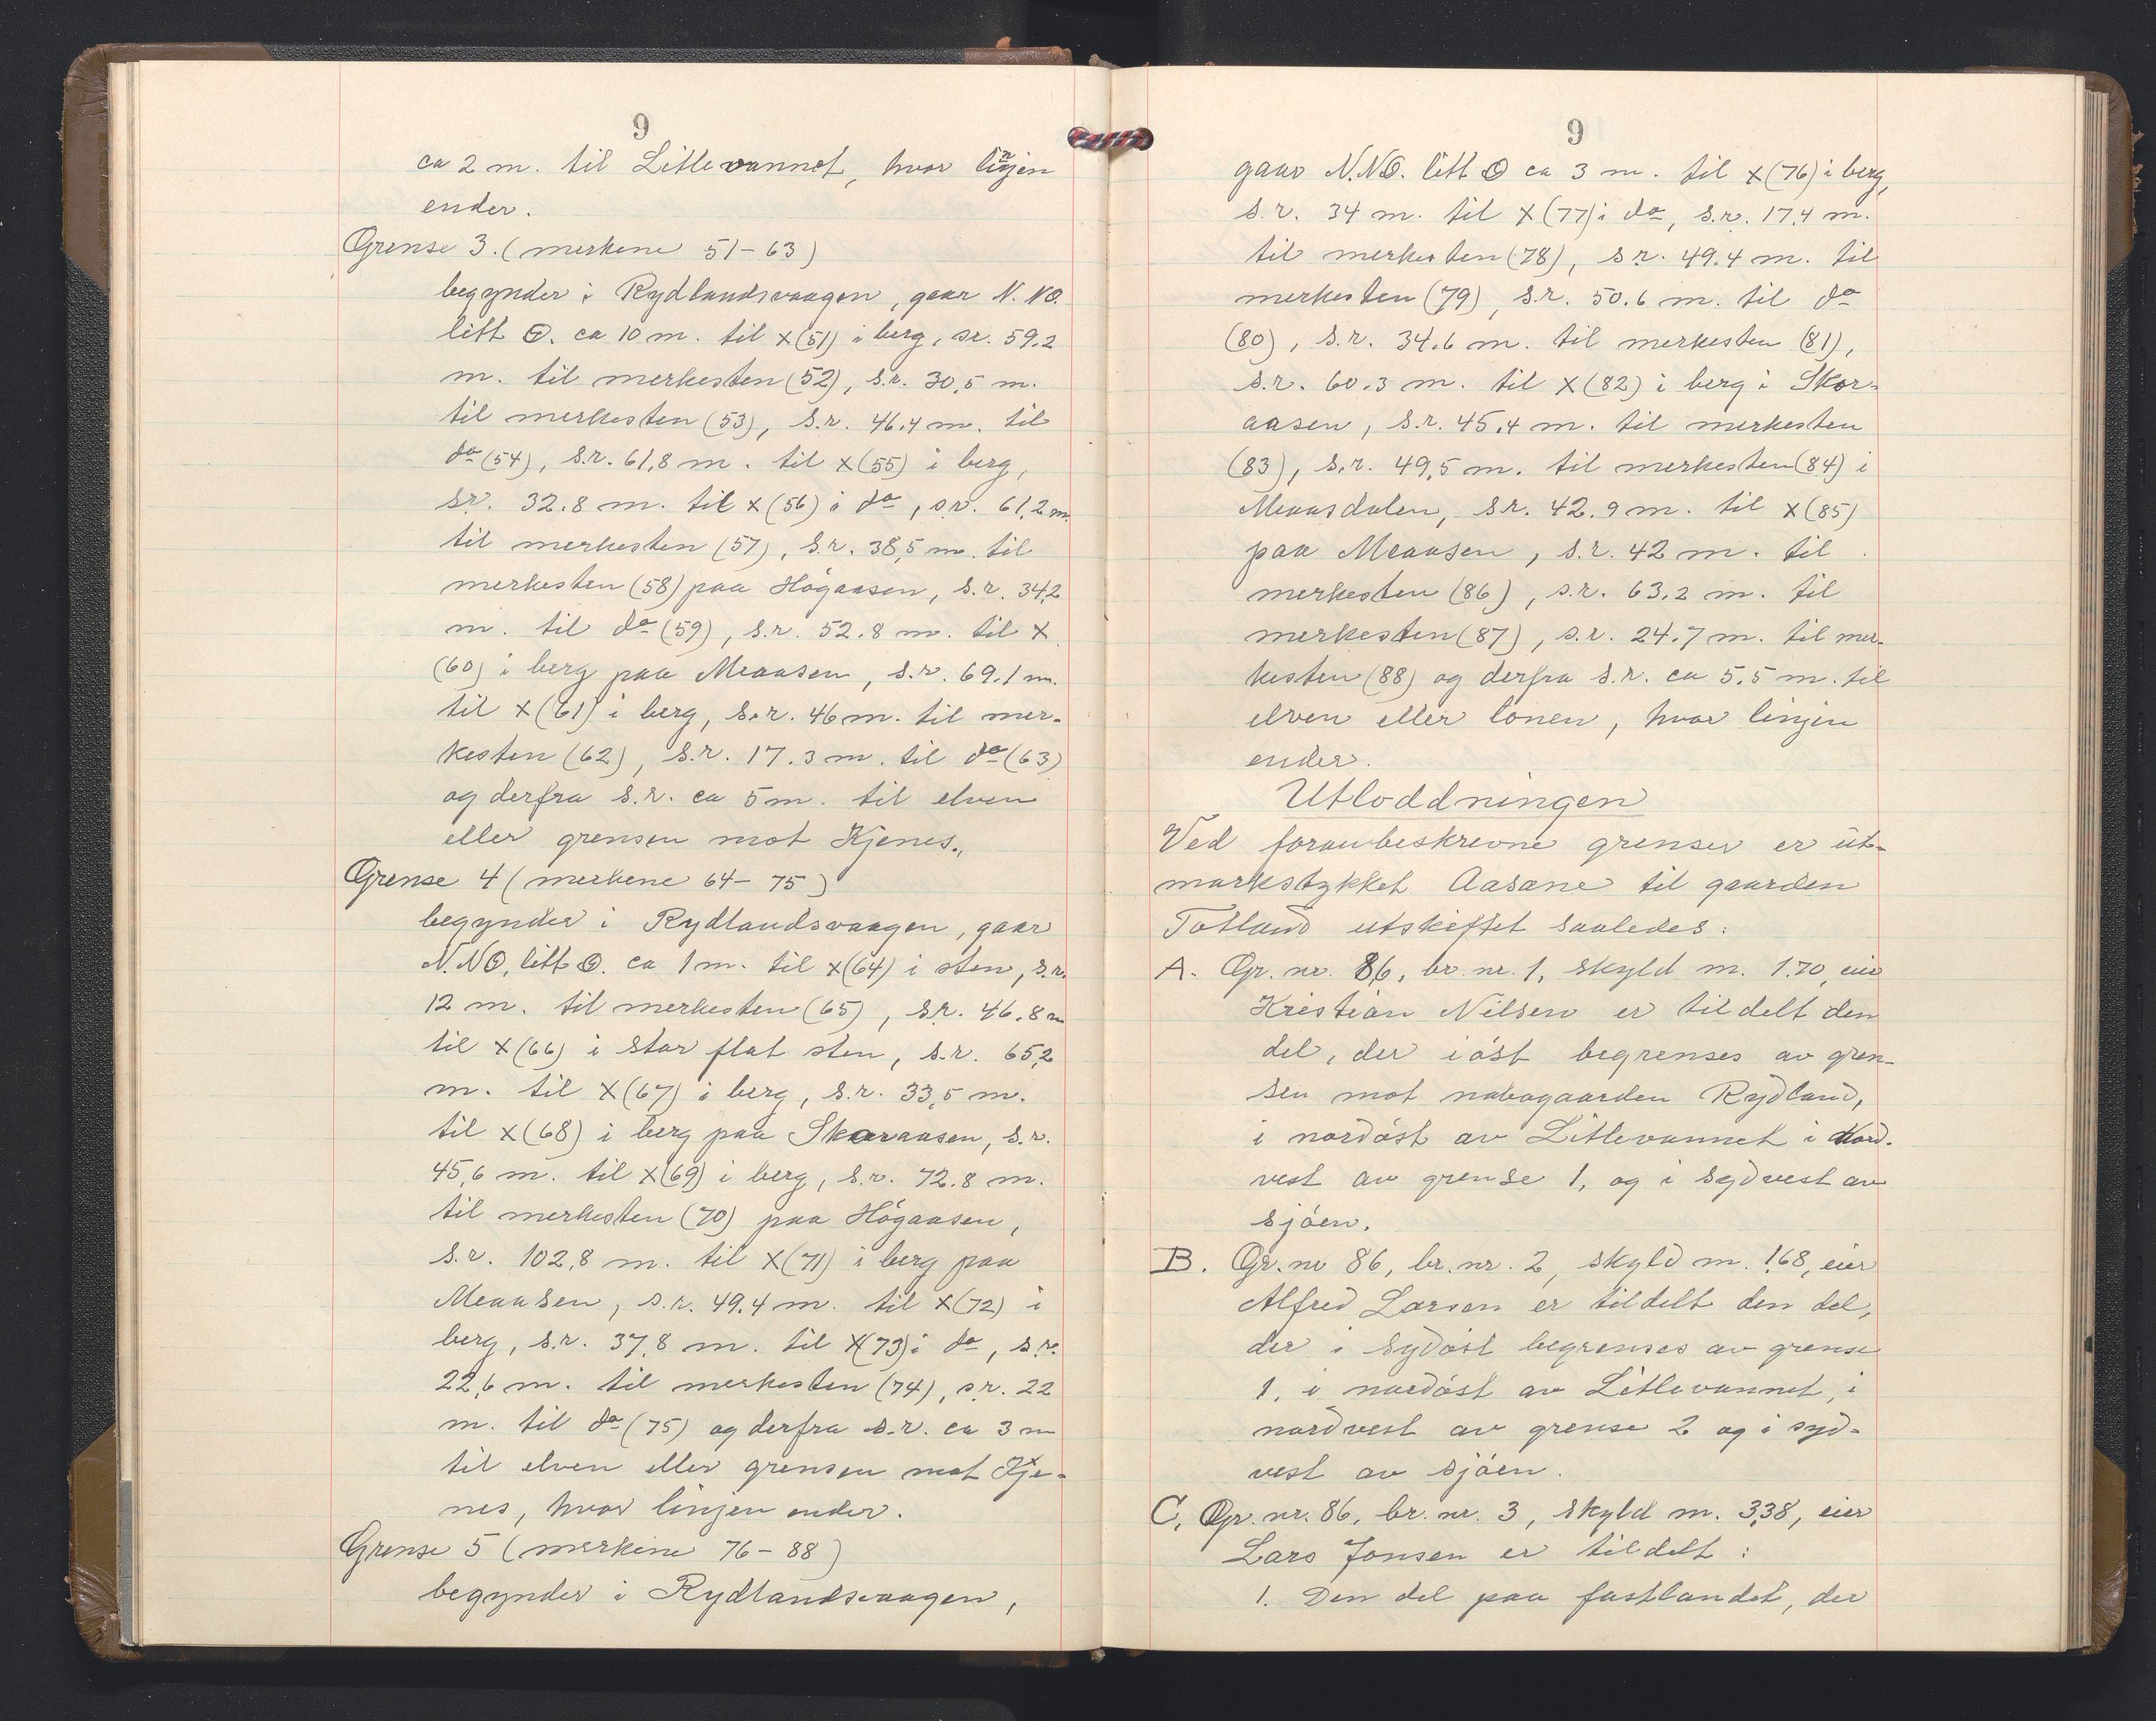 9
ca 2 m. til Litlevannet, hvor linjen
ender.
Grense 3. (merkene 51-63)
begynder i Rydlandsvaagen, gaar N.NO.
litt O. ca 10 m. til x(51) i berg, sr. 59.2
m. til merkesten (52), s.r. 30,5 m.
til merkesten (53), s.r. 46.4 m. til
do (54), s.r. 61,8 m. til x(55) i berg,
sr. 32.8 m. til x(56) i do, s.r. 61,2 m.
til merkesten (57), s.r. 38,5 m. til
merkesten (58) paa Högaasen, s.r. 34,2
m. til do (59), s.r. 52.8 m. til x
(60) i berg paa Meaasen, s.r. 69.1 m.
til x(61) i berg, s.r. 46 m. til mer-
kesten (62), s.r. 17.3 m. til do (63)
og derfra s.r. ca 5 m. til elven
eller grensen mot Kjenes.
Grense 4 (merkene 64-75)
begynder i Rydlandsvaagen, gaar
N.NO. litt O. ca 1 m. til x(64) i sten, s.r.
12 m. til merkesten (65), s.r. 46.8 m
til x(66) i stor flat sten, s.r. 65,2
m. til x(67) i berg, s.r. 33,5 m.
til x(68) i berg paa Skoraasen, s.r.
45,6 m. til x(69) i berg, s.r. 72.8 m.
til merkesten (70) paa Högaasen,
s.r. 102,8 m. til x(71) i berg paa
Meaasen, s.r. 49.4 m. til x(72) i
berg, s.r. 37,8 m. til x(73) i do, s.r.
22,6 m. til merkesten (74), s.r. 22
m. til do (75) og derfra s.r. ca 3 m
til elven eller grensen mot Kje-
nes, hvor linjen ender.
Grense 5 (merkene 76-88)
begynder i Rydlandsvaagen,
9
gaar N.NO. litt O ca 3 m. til x(76) i berg,
s.r. 34 m. til x(77) i do, s.r. 17,4 m.
til merkesten (78), s.r. 49.4 m. til
merkesten (79), s.r. 50.6 m. til do
(80), s.r. 34.6 m. til merkesten (81),
s.r. 60.3 m. til x(82) i berg i Skor-
aasen, s.r. 45.4 m. til merkesten
(83), s.r. 49,5 m. til merkesten (84) i
Meaasdalen, s.r. 42.9 m. til x(85)
paa Meaasen, s.r. 42 m. til
merkesten (86), s.r. 63.2 m. til
merkesten (87), s.r. 24.7 m. til mer-
kesten (88) og derfra s.r. ca 5.5 m. til
elven eller lonen, hvor linjen
ender.
Utloddningen
Ved foranbeskrevne grenser er ut-
markstykket Aasane til gaarden
Totland utskiftet saaledes:
A. Gr. nr. 86, br. nr. 1, skyld m. 1.70, eier
Kristian Nilsen er tildelt den
del, der i öst begrenses av gren-
sen mot nabogaarden Rydland,
i nordöst av Litlevannet i Nord-
vest av grense 1, og i sydvest av
sjöen.
B. Gr. nr 86, br. nr. 2, skyld m. 1,68, eier
Alfred Larsen er tildelt den del,
der i sydöst begrenses av grense
1, i nordöst av Litlevannet, i
nordvest av grense 2 og i syd-
vest av sjöen.
C. Gr. nr. 86, br. nr. 3, skyld m. 3,38, eier
Lars Jonsen er tildelt:
1. Den del paa fastlandet, der